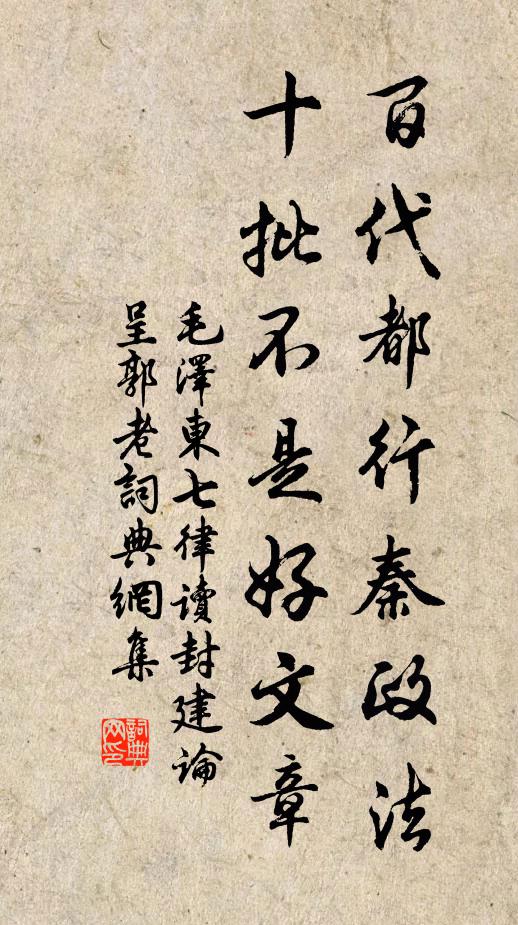 百代都行秦政法
十批不是好文章
毛澤東七律讀封建論
呈郭老詞典網集
詞典
网印